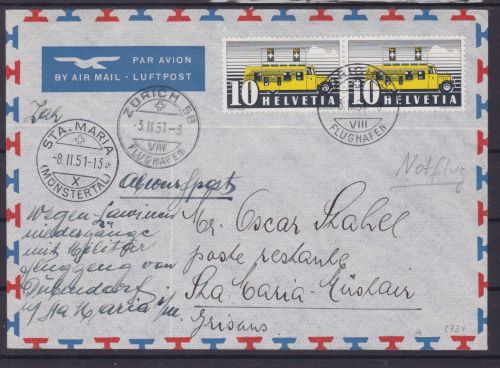 PAR AVION
BY AIR MAIL - LUFTPOST
10 HELVETIA
10 HELVETIA
ZÜRICH 58
-3.II.51-8
VIII
FLUGHAFEN
VIII
FLUGHAFEN
STA. MARIA
-8.II.51-13
X
(MÜNSTERTAL)
Notflug
Abwurfpost
Wegen Lawinen
niedergänge
mit Militär
flugzeug von
Dübendorf
n/Sta Maria i/M.
Mr. Oscar Stahel
poste restante
Sta. Maria-Müstair
Grisons